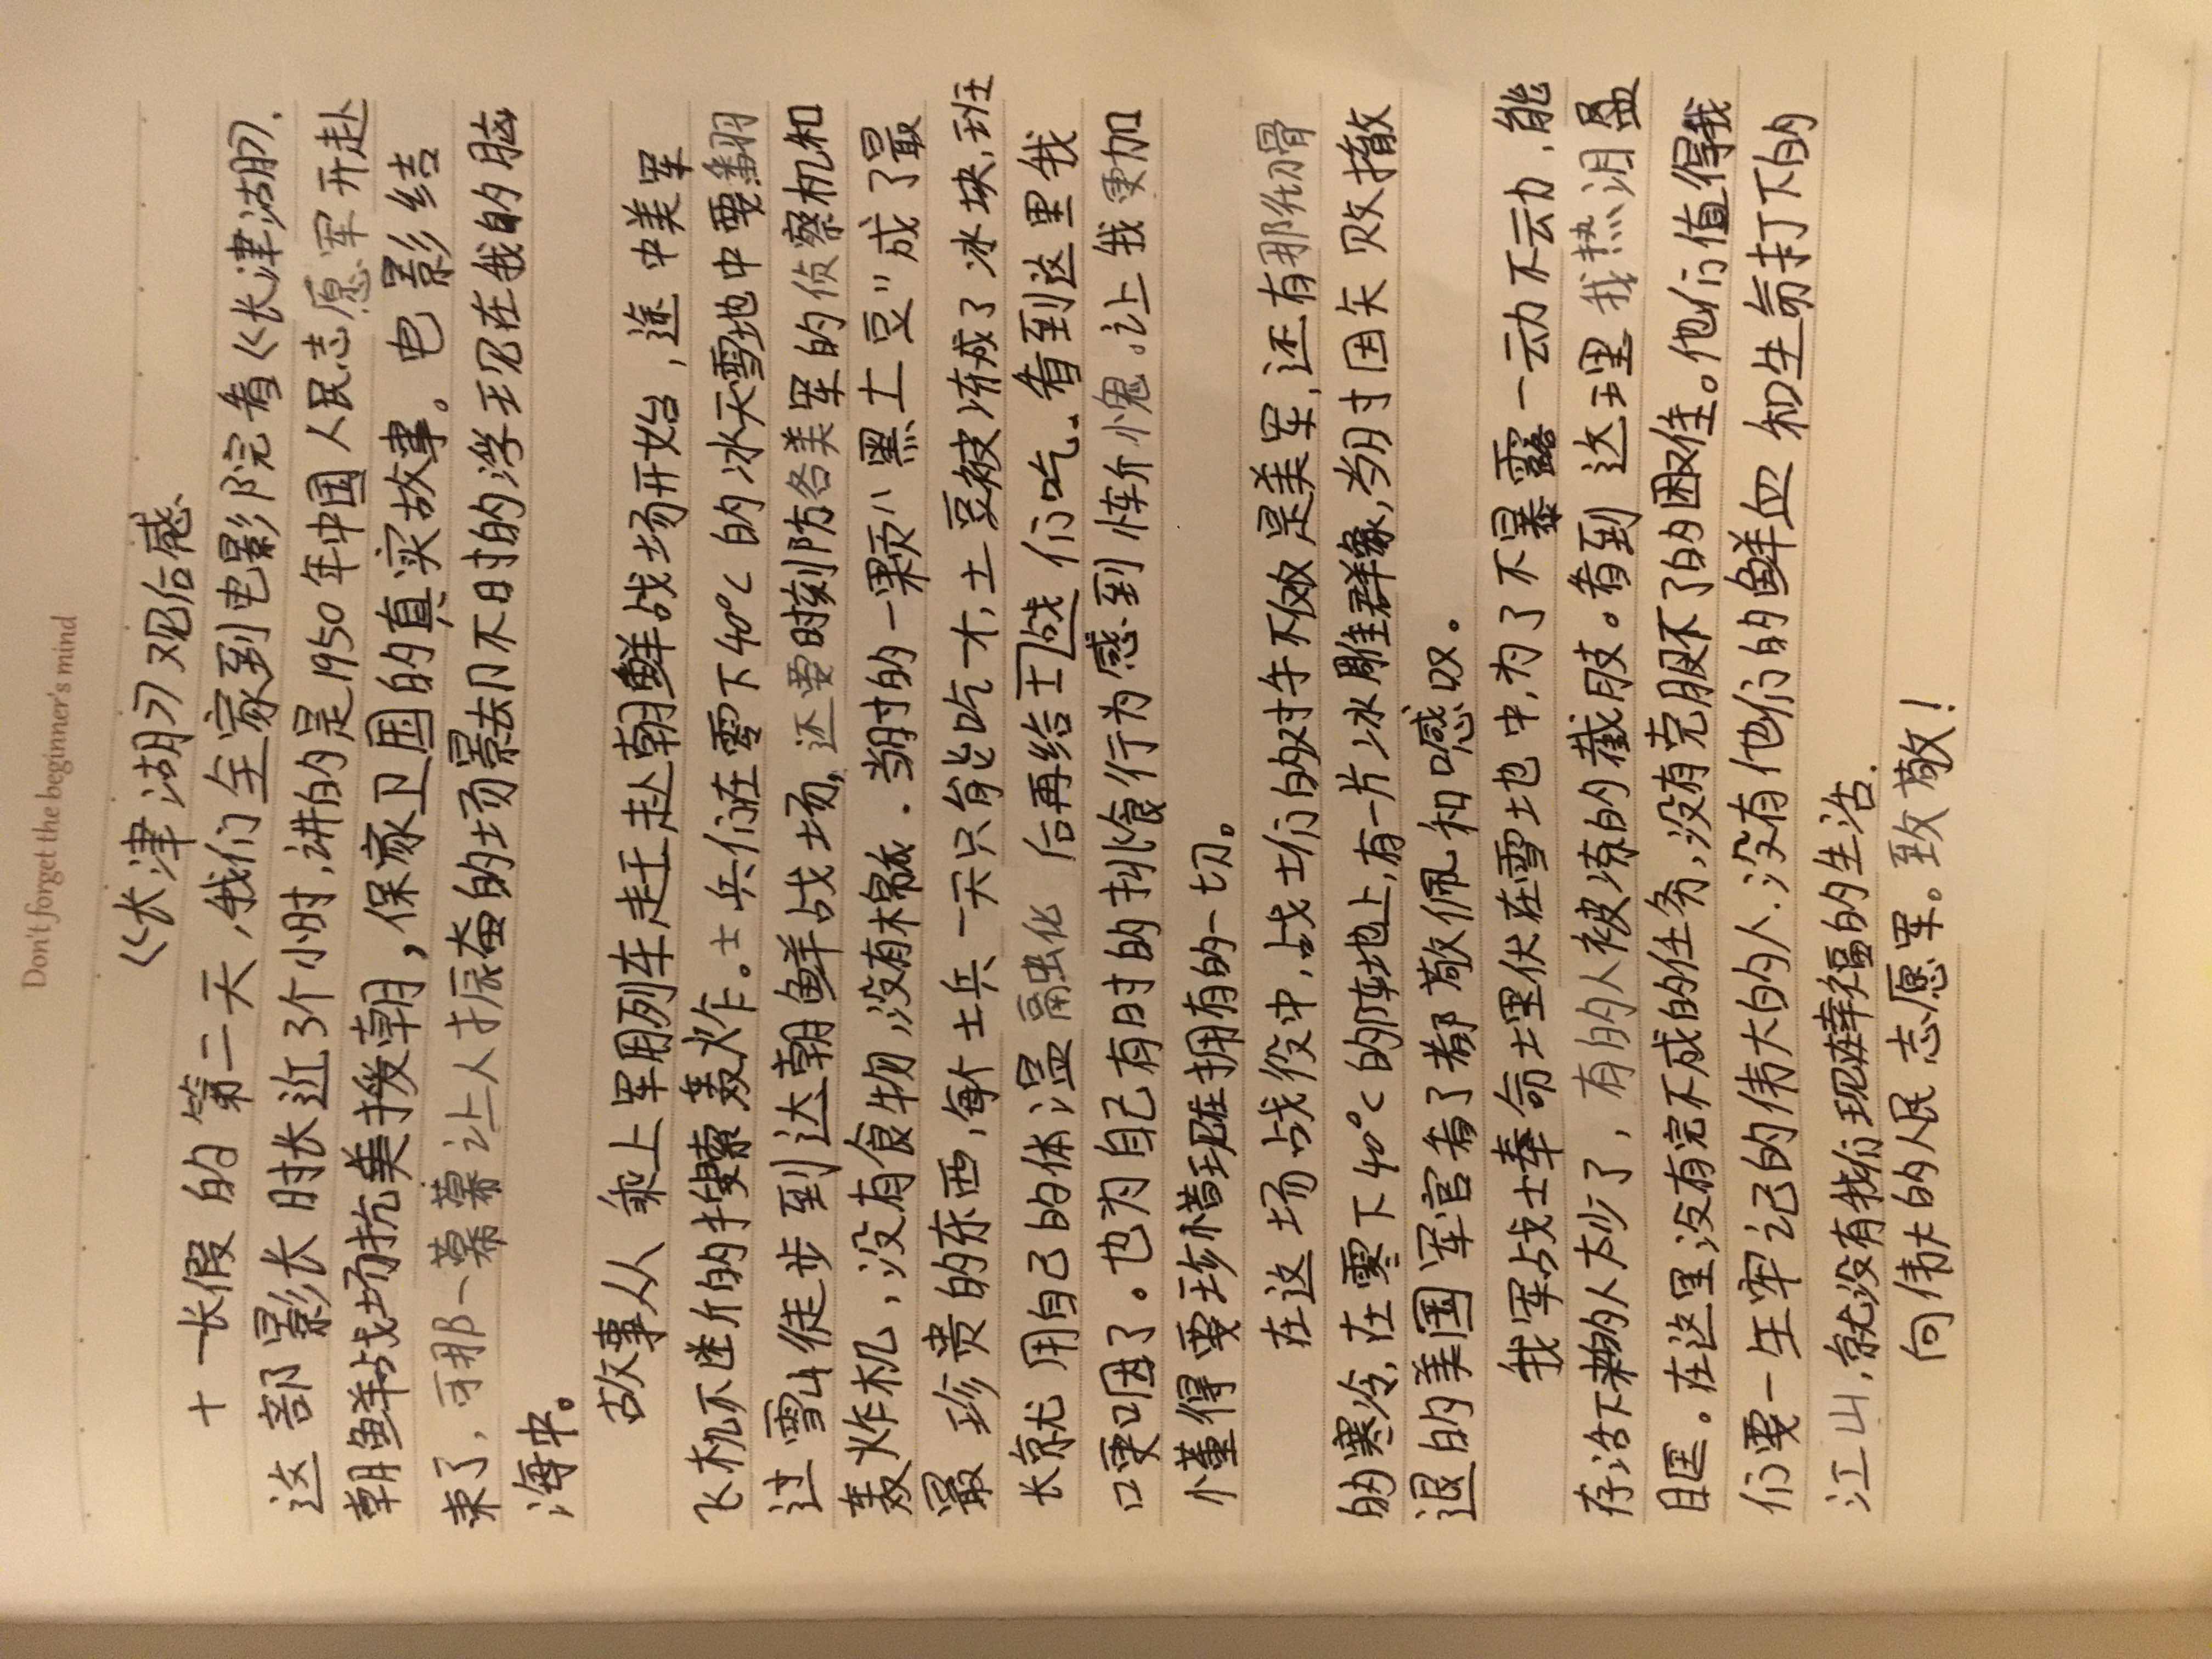 Don't forget the beginner's mind
《长津湖》观后感
十一长假的第二天,我们全家到电影院看《长津湖》.
这部影长时长近3个小时,讲的是1950年中国人民志愿军开赴
朝鲜战场抗美援朝,保家卫国的真实故事。电影结
束了,可那一幕幕让人振奋的场景去不时的浮现在我的脑
海中。
故事从乘上军用列车走王赴朝鲜战场开始,途中美军
飞机不断的搜索轰炸。士兵们在零下40℃的冰天雪地中要翻
过雪山徒步到达朝鲜战场,还要时刻防备美军的侦察机和
轰炸机,没有食物,没有棉衣.当时的一颗"黑土豆"成了最
最珍贵的东西,每个士兵一天只能吃一个,土豆被冻成了冰块,班
长就用自己的体温融化后再给士战们吃.看到这里我
哽咽了。也为自己有时的挑食行为感到惭愧.让我更加
懂得要珍惜现在拥有的一切。
在这场战役中,战士们的对手不仅是美军,还有那刺骨
的寒冷,在零下40℃的阵地上,有一片冰雕群象,当时因失败撤
退的美国军官看了都敬佩和感叹。
我军战士奉命埋伏在雪地中,为了不暴露一动不动,能
存活下来的人太少了,有的人被冻的截肢。看到这里我热泪盈
眶。在这里没有完不成的任务,没有克服不了的困难。他们值得我
们要一生牢记的伟大的人.没有他们的鲜血和生命打下的
江山,就没有我们现在幸福的生活.
向伟大的人民志愿军。致敬!